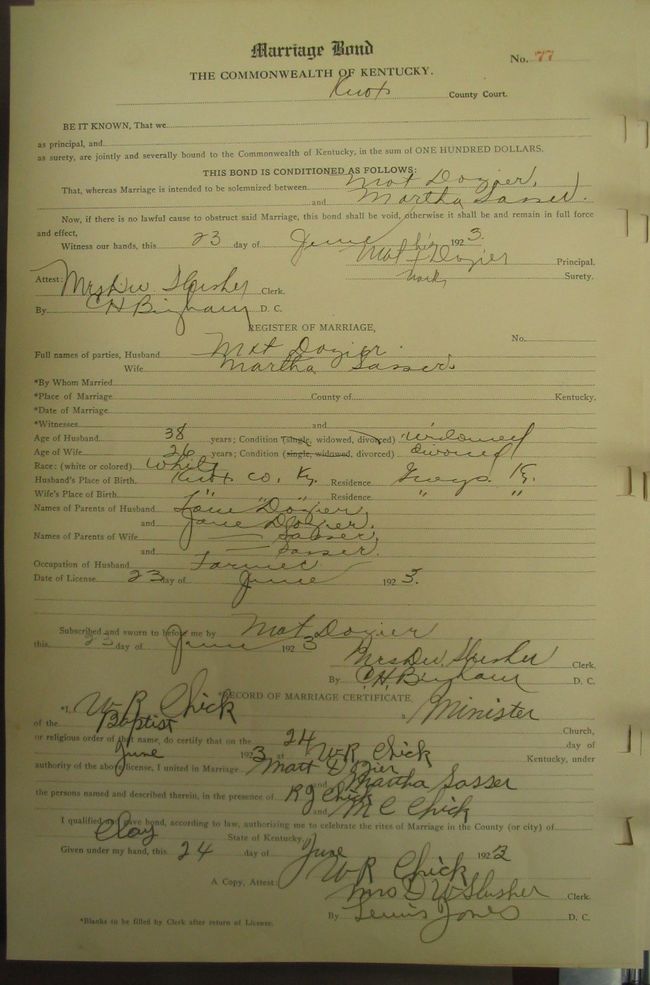 Marriage Bond
No. 77
THE COMMONWEALTH OF KENTUCKY.
Knox County Court.
BE IT KNOWN, That we
as principal, and
as surety, are jointly and severally bound to the Commonwealth of Kentucky, in the sum of ONE HUNDRED DOLLARS.
THIS BOND IS CONDITIONED AS FOLLOWS:
That, whereas Marriage is intended to be solemnized between Mat Dozier,
and Martha Sasser.
Now, if there is no lawful cause to obstruct said Marriage, this bond shall be void, otherwise it shall be and remain in full force
and effect,
Witness our hands, this 23 day of June 1923
his
Mat + Dozier Principal.
mark Surety.
Attest: Mrs DW Slusher Clerk.
By C H Bingham D. C.
REGISTER OF MARRIAGE,
No.
Full names of parties, Husband Mat Dozier.
Wife Martha Sasser.
*By Whom Married
*Place of Marriage County of Kentucky.
*Date of Marriage
*Witnesses and
Age of Husband 38 years; Condition (single, widowed, divorced) widowed
Age of Wife 26 years; Condition (single, widowed, divorced) divorced
Race: (white or colored) White
Husband's Place of Birth Knox Co. Ky. Residence Grays Ky.
Wife's Place of Birth " " " Residence " "
Names of Parents of Husband Dozier,
and Jane Dozier.
Names of Parents of Wife — Sasser,
and — Sasser.
Occupation of Husband Farmer
Date of License 23 day of June 1923.
Subscribed and sworn to before me by Mat Dozier
this 23 day of June 1923
Mrs DW Slusher Clerk.
By C. H. Bingham D. C.
*RECORD OF MARRIAGE CERTIFICATE.
*I, W R Chick a Minister
of the Baptist Church,
or religious order of that name, do certify that on the 24 day of
June 1923 at W R Chick Kentucky, under
authority of the above license, I united in Marriage Matt Dozier
and Martha Sasser
the persons named and described therein, in the presence of R J Chick
and M C Chick
I qualified and gave bond, according to law, authorizing me to celebrate the rites of Marriage in the County (or city) of
Clay State of Kentucky.
Given under my hand, this 24 day of June 1923
W R Chick
A Copy, Attest: Mrs D W Slusher Clerk.
By Lewis Jones D. C.
*Blanks to be filled by Clerk after return of License.